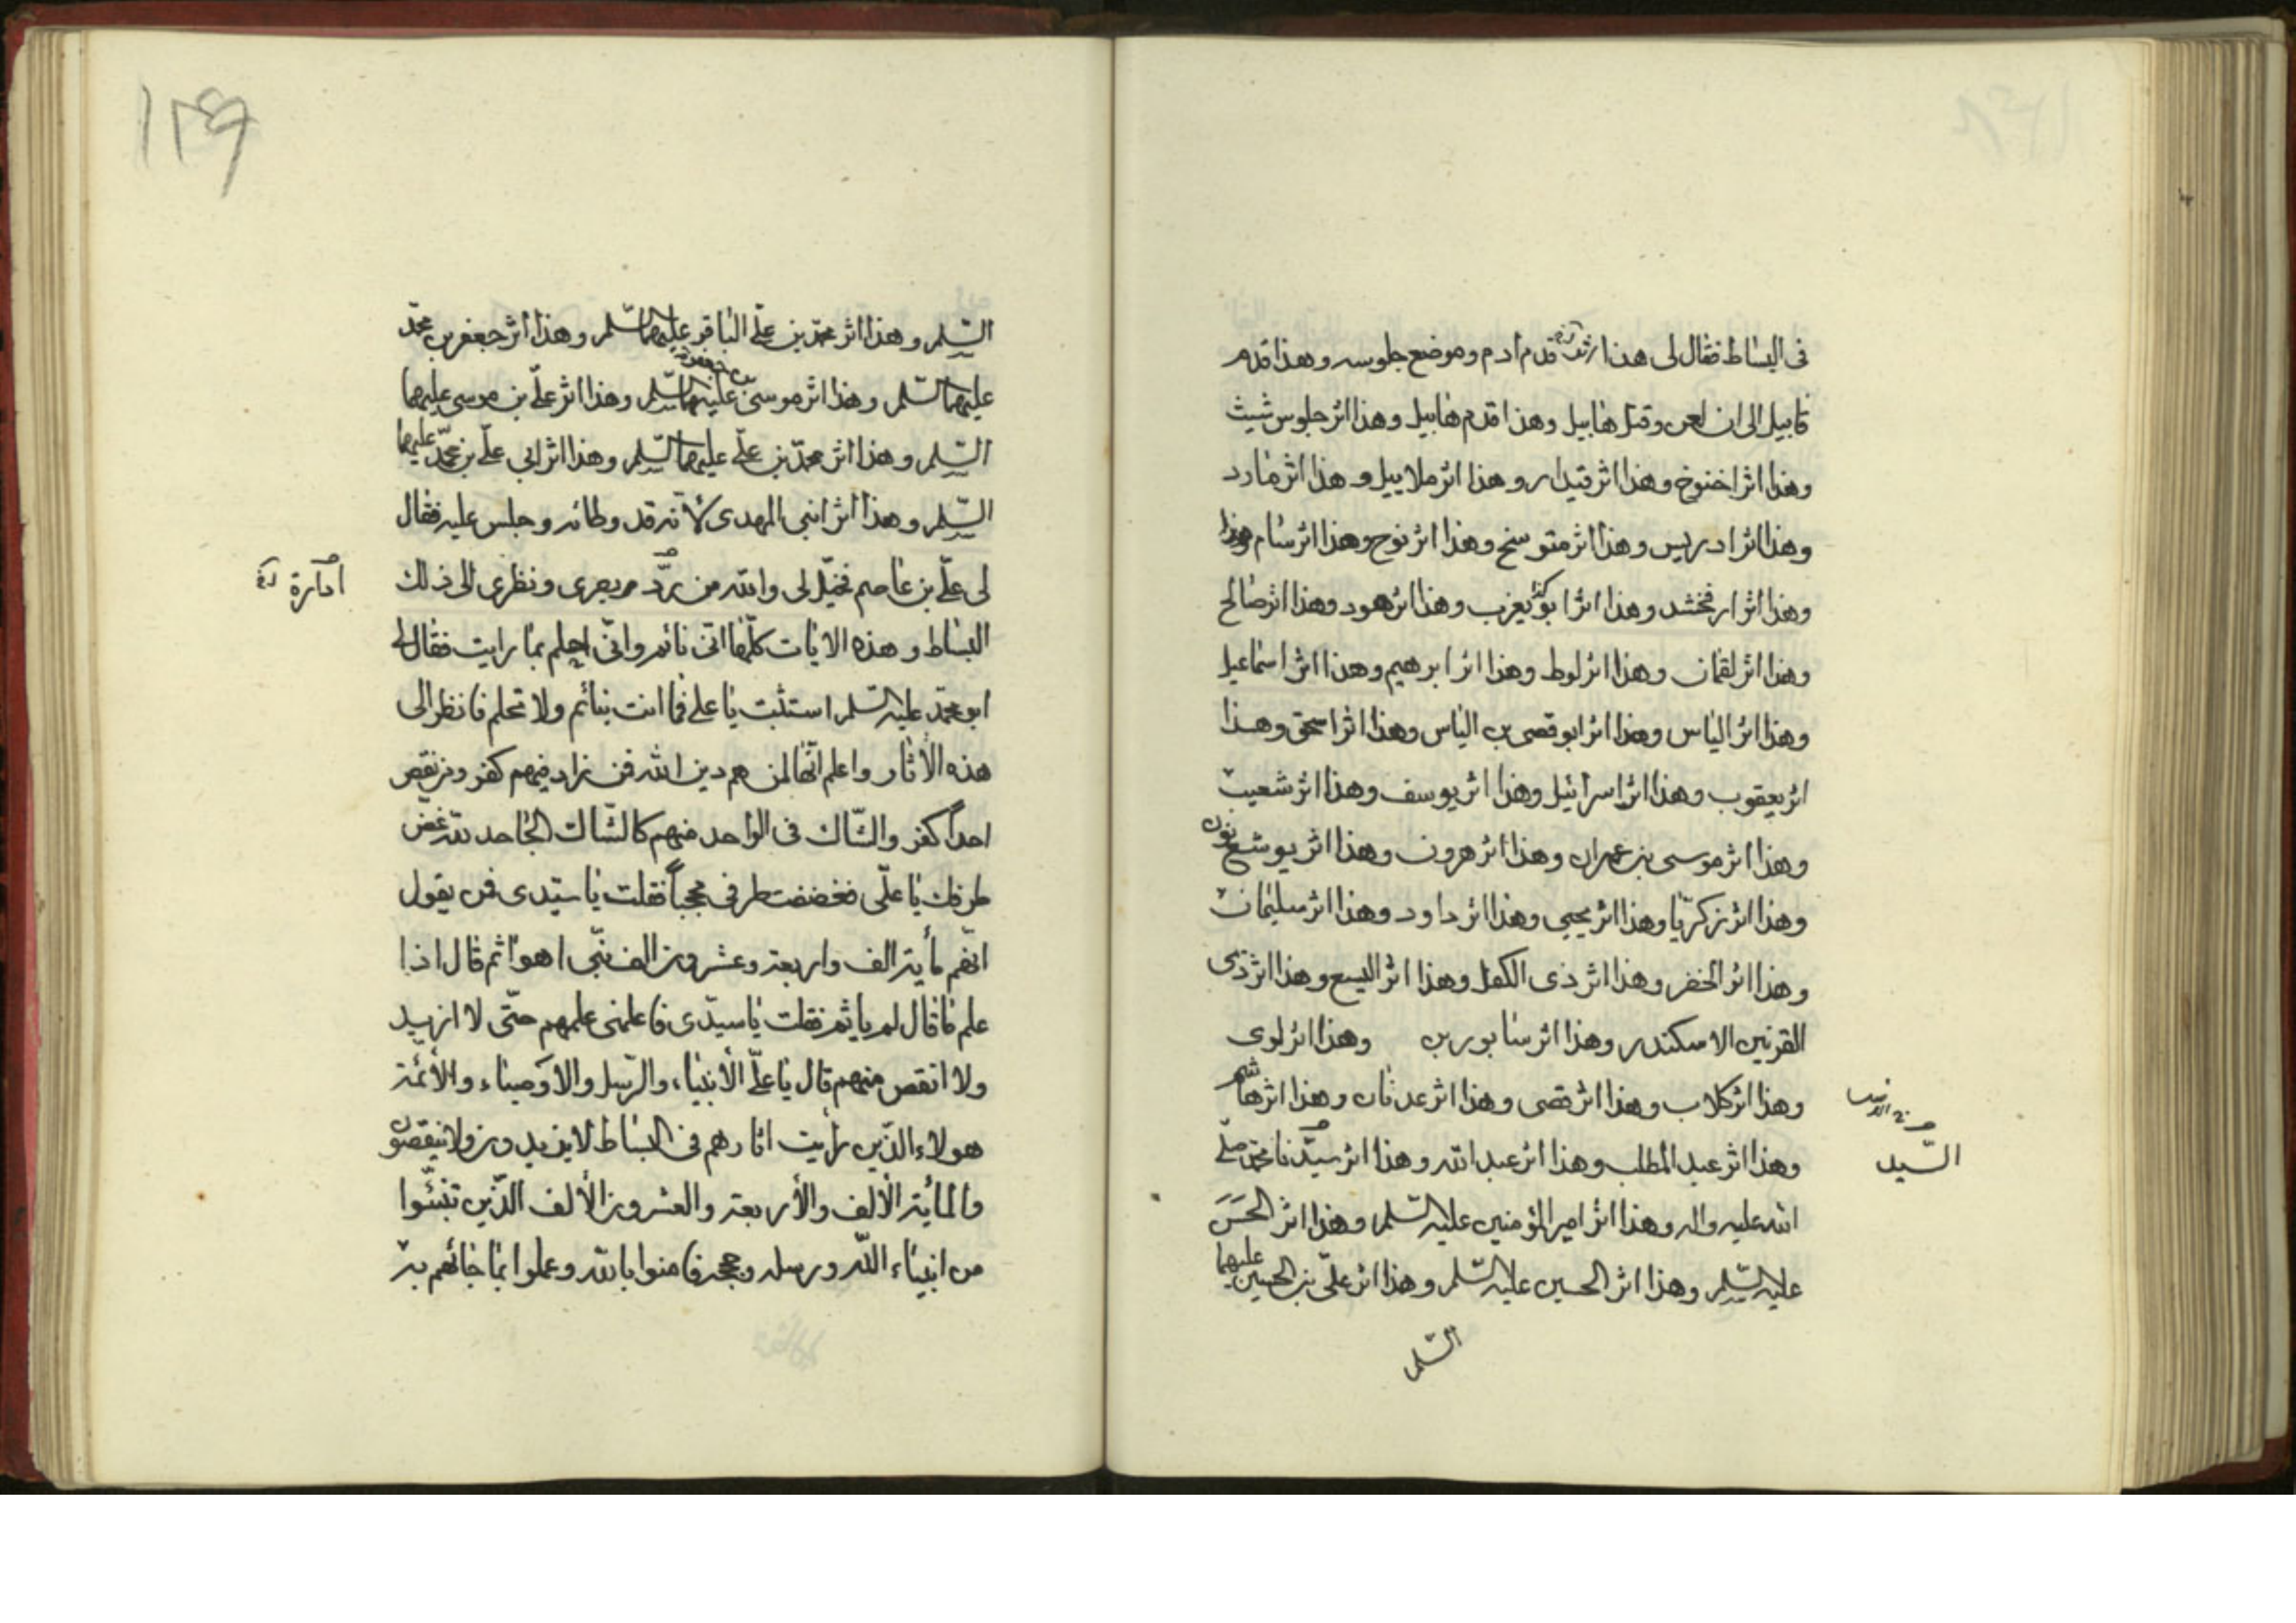 فى البساط فقال لى هذا اثر قدم ادم وموضع جلوسه وهذا قدم
قابيل الى ان لعن وقتل هابيل وهذا قدم هابيل وهذا اثر جلوس شيث
وهذا اثر اخنوخ وهذا اثر قيدار وهذا اثر ملاييل وهذا اثر مارد
وهذا اثر ادريس وهذا اثر متوسخ وهذا اثر نوح وهذا اثر سام وهذا
وهذا اثر ارفخشد وهذا اثر ابو يعرب وهذا اثر هود وهذا اثر صالح
وهذا اثر لقمان وهذا اثر لوط وهذا اثر ابرهيم وهذا اثر اسماعيل
وهذا اثر الياس وهذا اثر ابو قصى بن الياس وهذا اثر اسحق وهذا
اثر يعقوب وهذا اثر اسرائيل وهذا اثر يوسف وهذا اثر شعيب
وهذا اثر موسى بن عمران وهذا اثر هرون وهذا اثر يوشع بن نون
وهذا اثر زكريّا وهذا اثر يحيى وهذا اثر داود وهذا اثر سليمان
وهذا اثر الخضر وهذا اثر ذى الكفل وهذا اثر اليسع وهذا اثر ذى
القرنين الاسكندر وهذا اثر سابور بن وهذا اثر لوى
وهذا اثر كلاب وهذا اثر قصى وهذا اثر عدنان وهذا اثر هاشم
وهذا اثر عبد المطلب وهذا اثر عبد الله وهذا اثر سيّدنا محمّد صلّى
السّيد
الله عليه واله وهذا اثر امير المؤمنين عليه السّلم وهذا اثر الحسن
عليه السّلم وهذا اثر الحسين عليه السّلم وهذا اثر علىّ بن الحسين عليهما
السّلم
١٣٩
السّلم وهذا اثر محمّد بن علىّ الباقر عليهما السّلم وهذا اثر جعفر بن محمّد
عليهما السّلم وهذا اثر موسى بن جعفر عليهما السّلم وهذا اثر علىّ بن موسى عليهما
السّلم وهذا اثر محمّد بن علىّ عليهما السّلم وهذا اثر ابى علىّ بن محمّد عليهما
السّلم وهذا اثر ابنى المهدى لأنّه قد وطائه وجلس عليه فقال
لى علىّ بن عاصم فخيّل لى والله من ردّ بصرى ونظرى الى ذلك
البساط وهذه الايات كلّها انّى نائم وانّى احلم بما رايت فقال لى
ابو محمّد عليه السّلم استثبت يا على فما انت بنائم ولا تحلم فانظر الى
هذه الأثار واعلم انّها لمن هم دين الله فمن زاد فيهم كفر ومن نقص
احداً كفر والشّاك فى الواحد منهم كالشّاك الجاحد لله غضّ
طرفك يا علىّ فغضضت طرفى محجباً فقلت يا سيّدى فمن يقول
انّهم مأية الف واربعة وعشرون الف نبّى اهوا ثم قال اذا
علم ما قال لم ياثم فقلت يا سيّدى فاعلمنى علمهم حتّى لا ازيد
ولا انقص منهم قال يا علىّ الأنبياء والرّسل والاوصياء والأئمّة
هولاء الذّين رأيت اثارهم فى البساط لا يزيدون ولا ينقصون
والمأية الألف والأربعة والعشرون الألف الذّين تنبّئوا
من انبياء اللّه ورسله وحججه فامنوا بالله وعملوا بما جائهم به